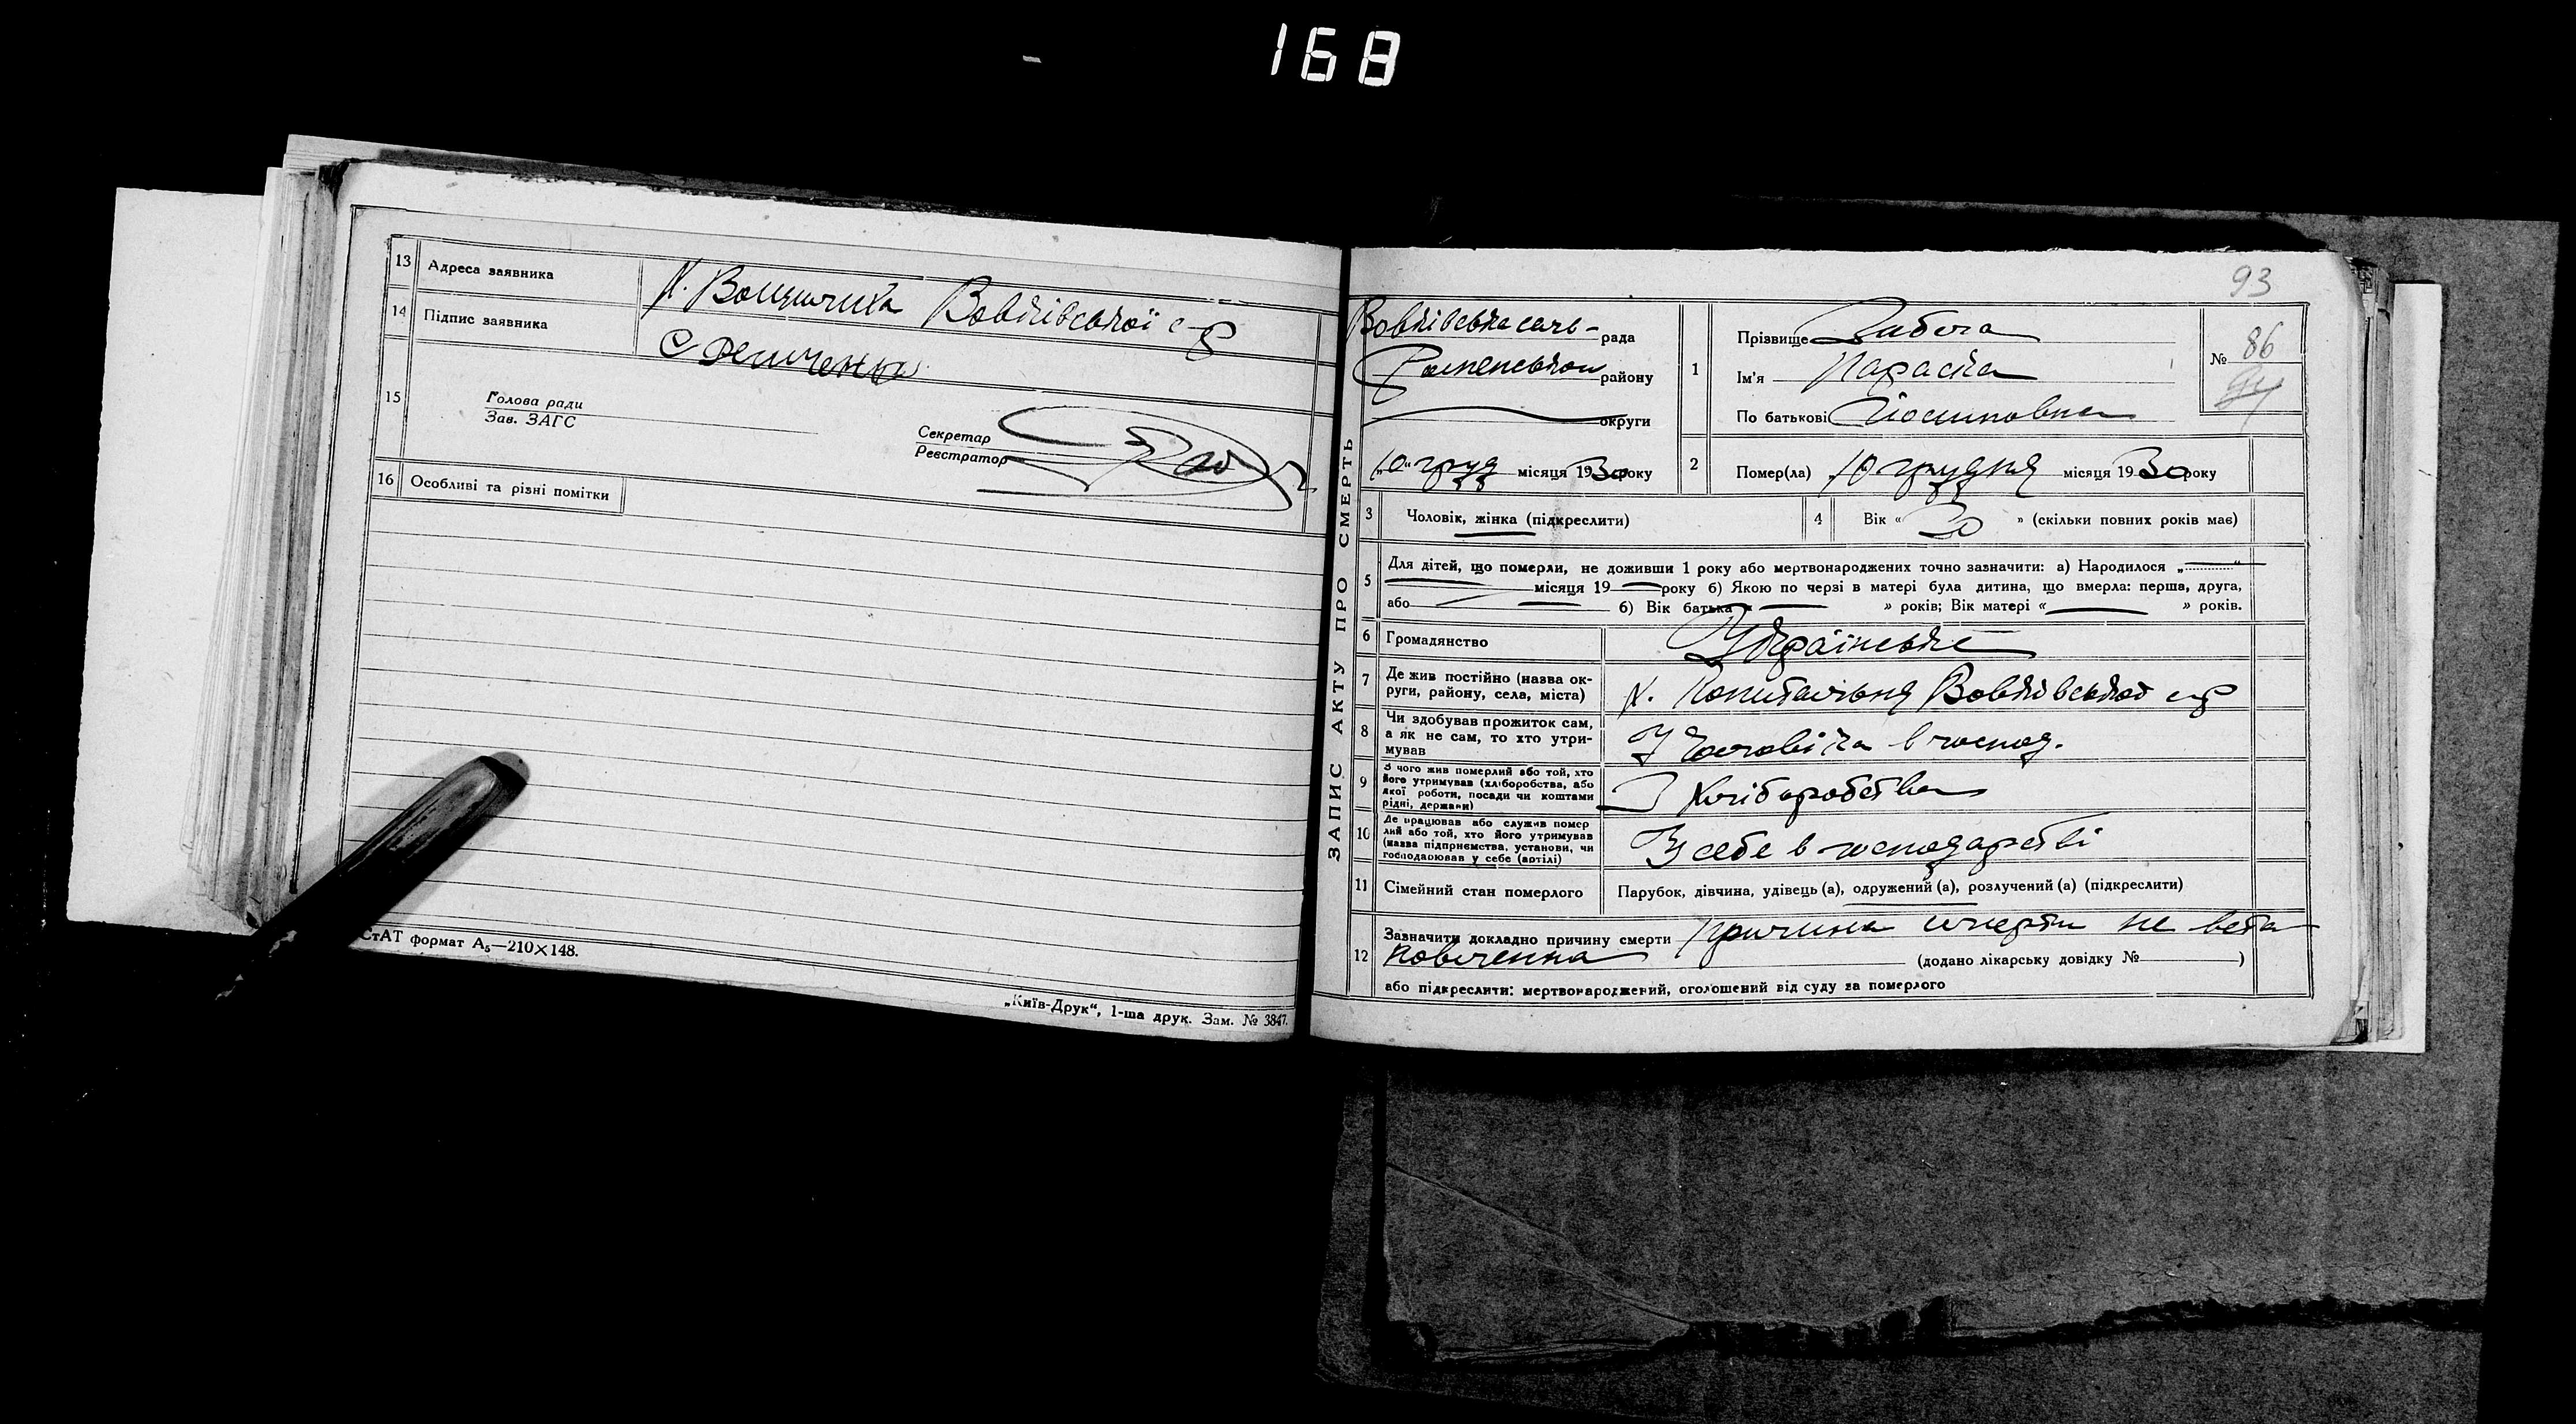 168
13 Адреса заявника Х. Вощилиха Вовківської с-р
14 Підпис заявника
15
Голова ради
Зав. ЗАГС
Секретар
Реєстратор
16 Особливі та різні помітки
СтАТ формат А5—210×148.
„Київ-Друк“, 1-ша друк. Зам. № 3847.
93
ЗАПИС АКТУ ПРО СМЕРТЬ
Вовківська сель- рада
Роменського району
округи
„10“ груд місяця 1930 року
1 Прізвище
Ім'я Параска
По батькові Йосиповна
№ 86
2 Помер(ла) 10 грудня місяця 1930 року
3 Чоловік, жінка (підкреслити)
4 Вік « 30 » (скільки повних років має)
5 Для дітей, що померли, не доживши 1 року або мертвонароджених точно зазначити: а) Народилося „ “
місяця 19 року б) Якою по черзі в матері була дитина, що вмерла: перша, друга,
або б) Вік батька « » років; Вік матері « » років.
6 Громадянство Українське
7 Де жив постійно (назва ок-
руги, району, села, міста) х. Вовківської с-р
8 Чи здобував прожиток сам,
а як не сам, то хто утри-
мував У чоловіка в господ.
9 З чого жив померлий або той, хто
його утримував (хліборобства, або
якої роботи, посади чи коштами
рідні, держави) З хліборобства
10 Де працював або служив помер
лий або той, хто його утримував
(назва підприємства, установи, чи
господарював у себе (артілі) У себе в господарстві
11 Сімейний стан померлого Парубок, дівчина, удівець (а), одружений (а), розлучений (а) (підкреслити)
12 Зазначити докладно причину смерти причина смерти не вста
новленна (додано лікарську довідку № )
або підкреслити: мертвонароджений, оголошений від суду за померлого